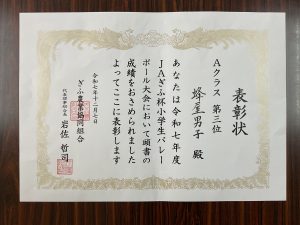 表彰状
Aクラス 第三位
蜂屋男子 殿
あなたは令和七年度
JAぎふ杯小学生バレー
ボール大会において頭書の
成績をおさめられました
よってここに表彰します
令和七年十二月七日
ぎふ農業協同組合
代表理事組合長 岩佐 哲司